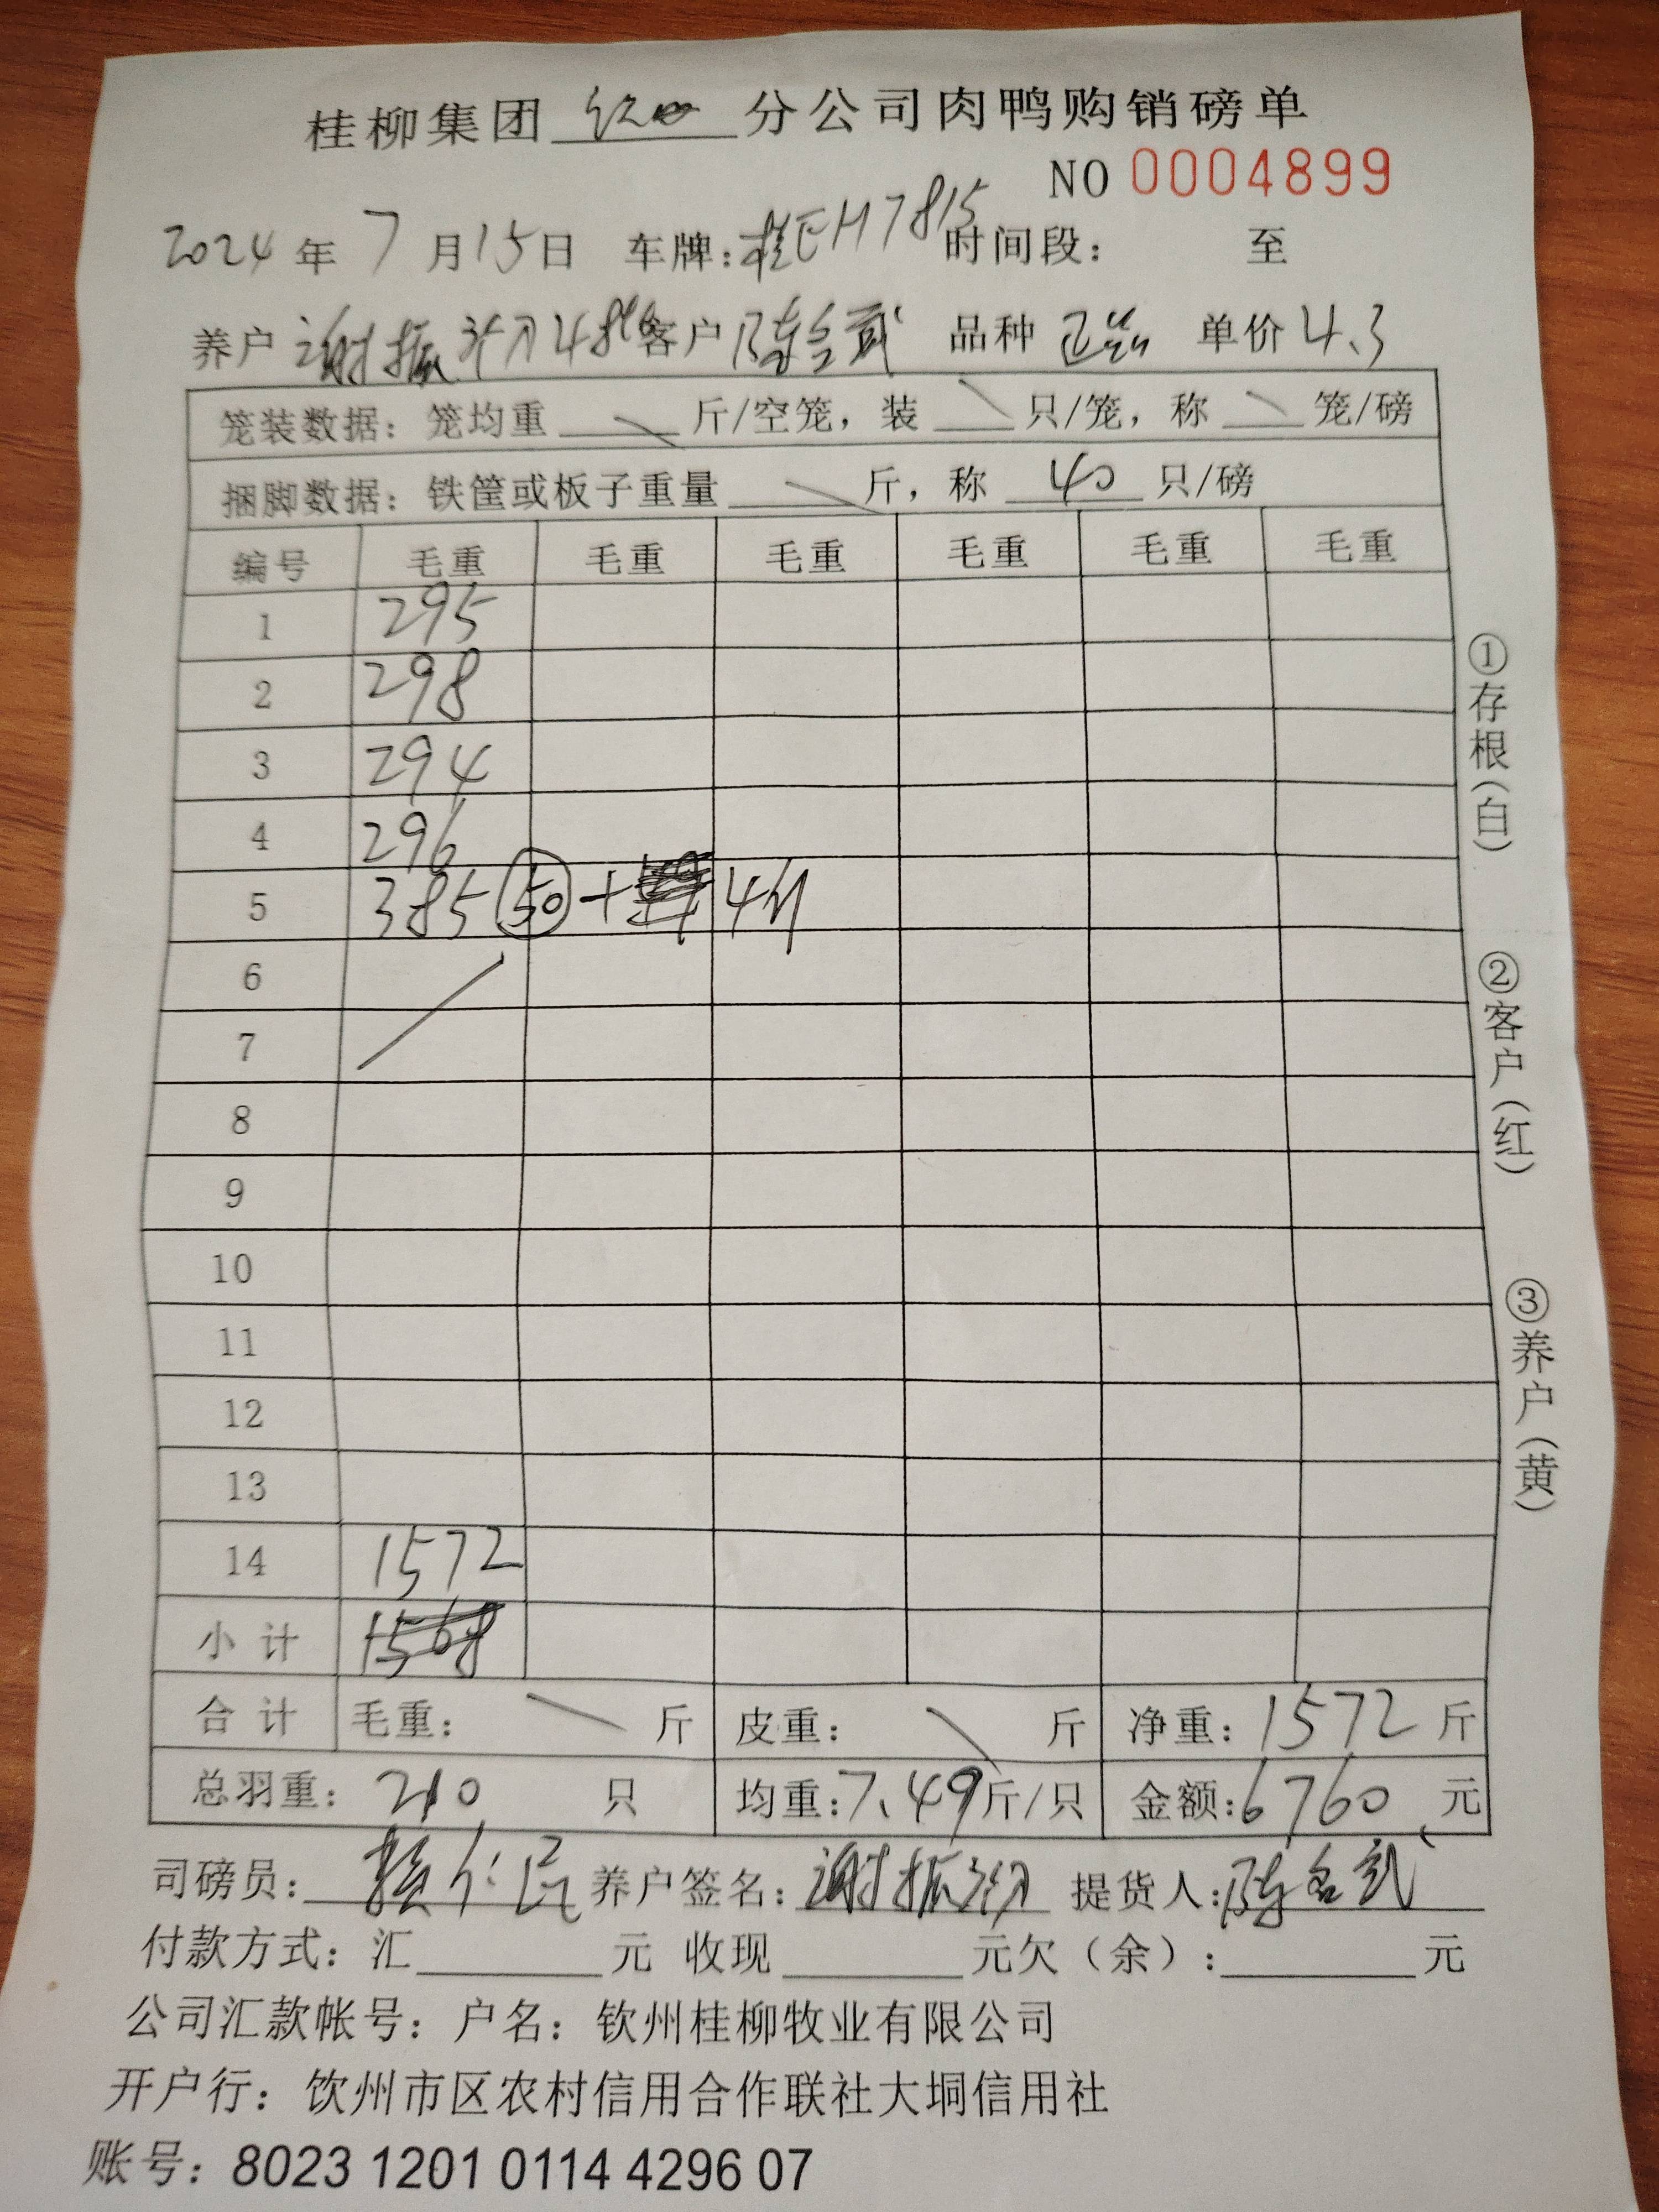 桂柳集团 分公司肉鸭购销磅单
NO 0004899
2024年7月15日 车牌:桂EH7815 时间段: 至
养户 谢振 客户 陈 品种 单价 4.3
笼装数据: 笼均重 斤/空笼, 装 只/笼, 称 笼/磅
捆脚数据: 铁筐或板子重量 斤, 称 40 只/磅
编号 毛重 毛重 毛重 毛重 毛重 毛重
1 295
2 298
3 294
4 296
5 385 50 +
6
7
8
9
10
11
12
13
14 1572
小计 1568
合计 毛重: 斤 皮重: 斤 净重: 1572 斤
总羽重: 210 只 均重: 7.49 斤/只 金额: 6760 元
司磅员: 养户签名: 谢振 提货人: 陈
付款方式: 汇 元 收现 元欠(余): 元
公司汇款帐号: 户名: 钦州桂柳牧业有限公司
开户行: 饮州市区农村信用合作联社大垌信用社
账号: 8023 1201 0114 4296 07
①存根(白)
②客户(红)
③养户(黄)